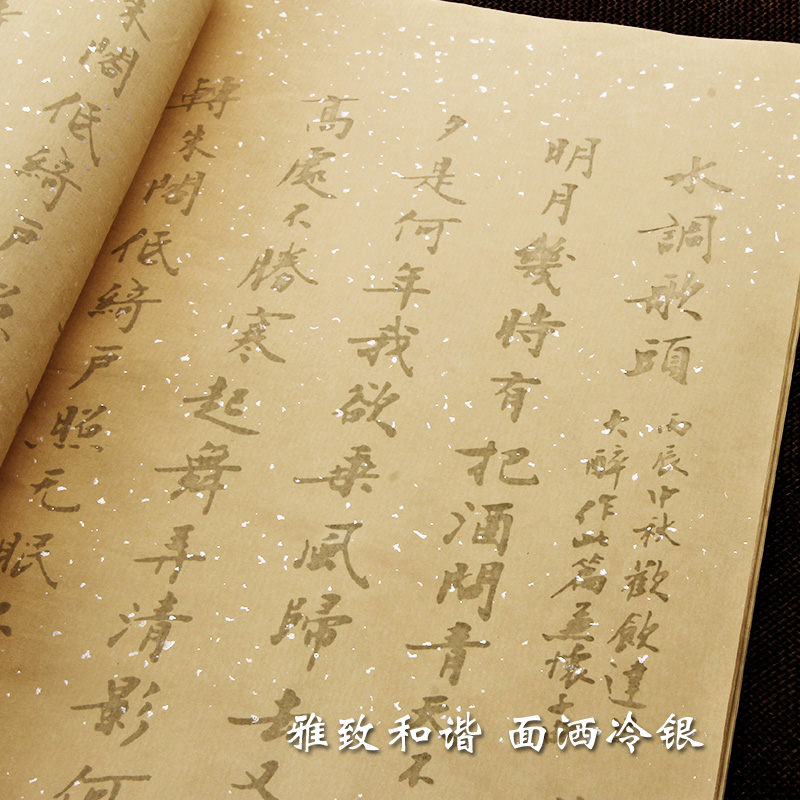 水調歌頭
丙辰中秋歡飲達
大醉作此篇兼懷
明月幾時有把酒問青天不
夕是何年我欲乘風歸去又
高處不勝寒起舞弄清影何
轉朱閣低綺戶照无眠不
朱閣低綺戶照
雅致和谐 面洒冷银